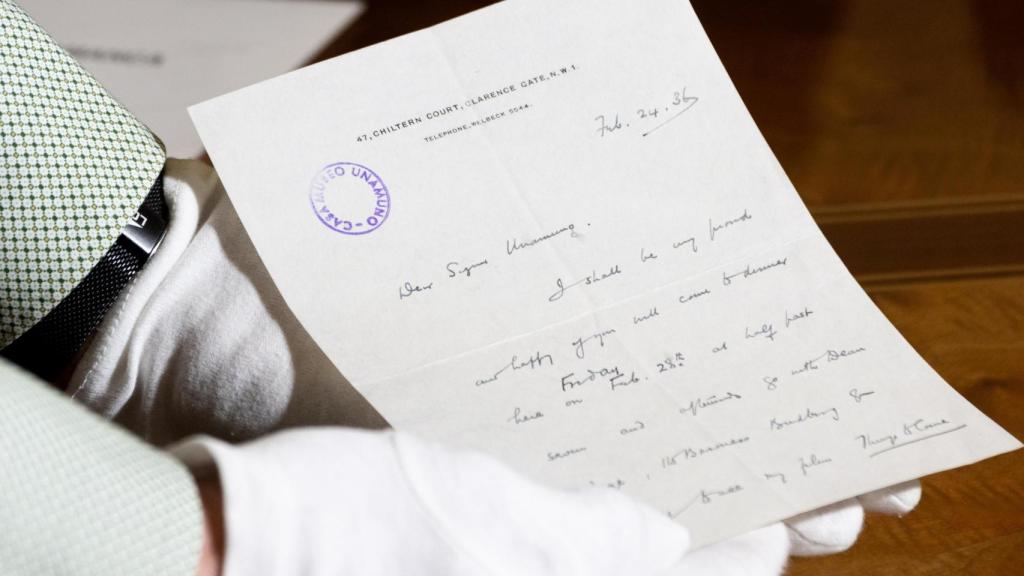 47, CHILTERN COURT, CLARENCE GATE, N.W.1.
TELEPHONE, WELBECK 5044.
Feb. 24. 36
CASA MUSEO UNAMUNO -
Dear Signor Unamuno.
I shall be very proud
and happy if you will come to dinner
here on Friday Feb. 28th at half past
seven and afterwards go with Dean
, the Baroness Budberg &
to see my film Things to Come